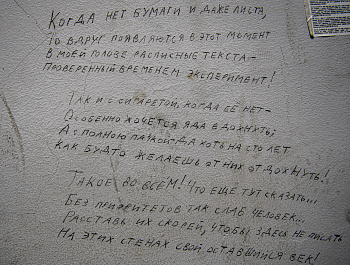 Когда нет бумаги и даже листа,
То вдруг появляются в этот момент
В моей голове расписные текста-
Проверенный временем эксперимент!
Так и с сигаретой, когда её нет-
Особенно хочется яда вдохнуть;
А с полною пачкой да хоть на сто лет
Как будто желаешь от них отдохнуть!
Такое во всём! Что ещё тут сказать...
Без приоритетов так слаб человек...
Расставь их скорей, чтобы здесь не писать
На этих стенах свой оставшийся век!